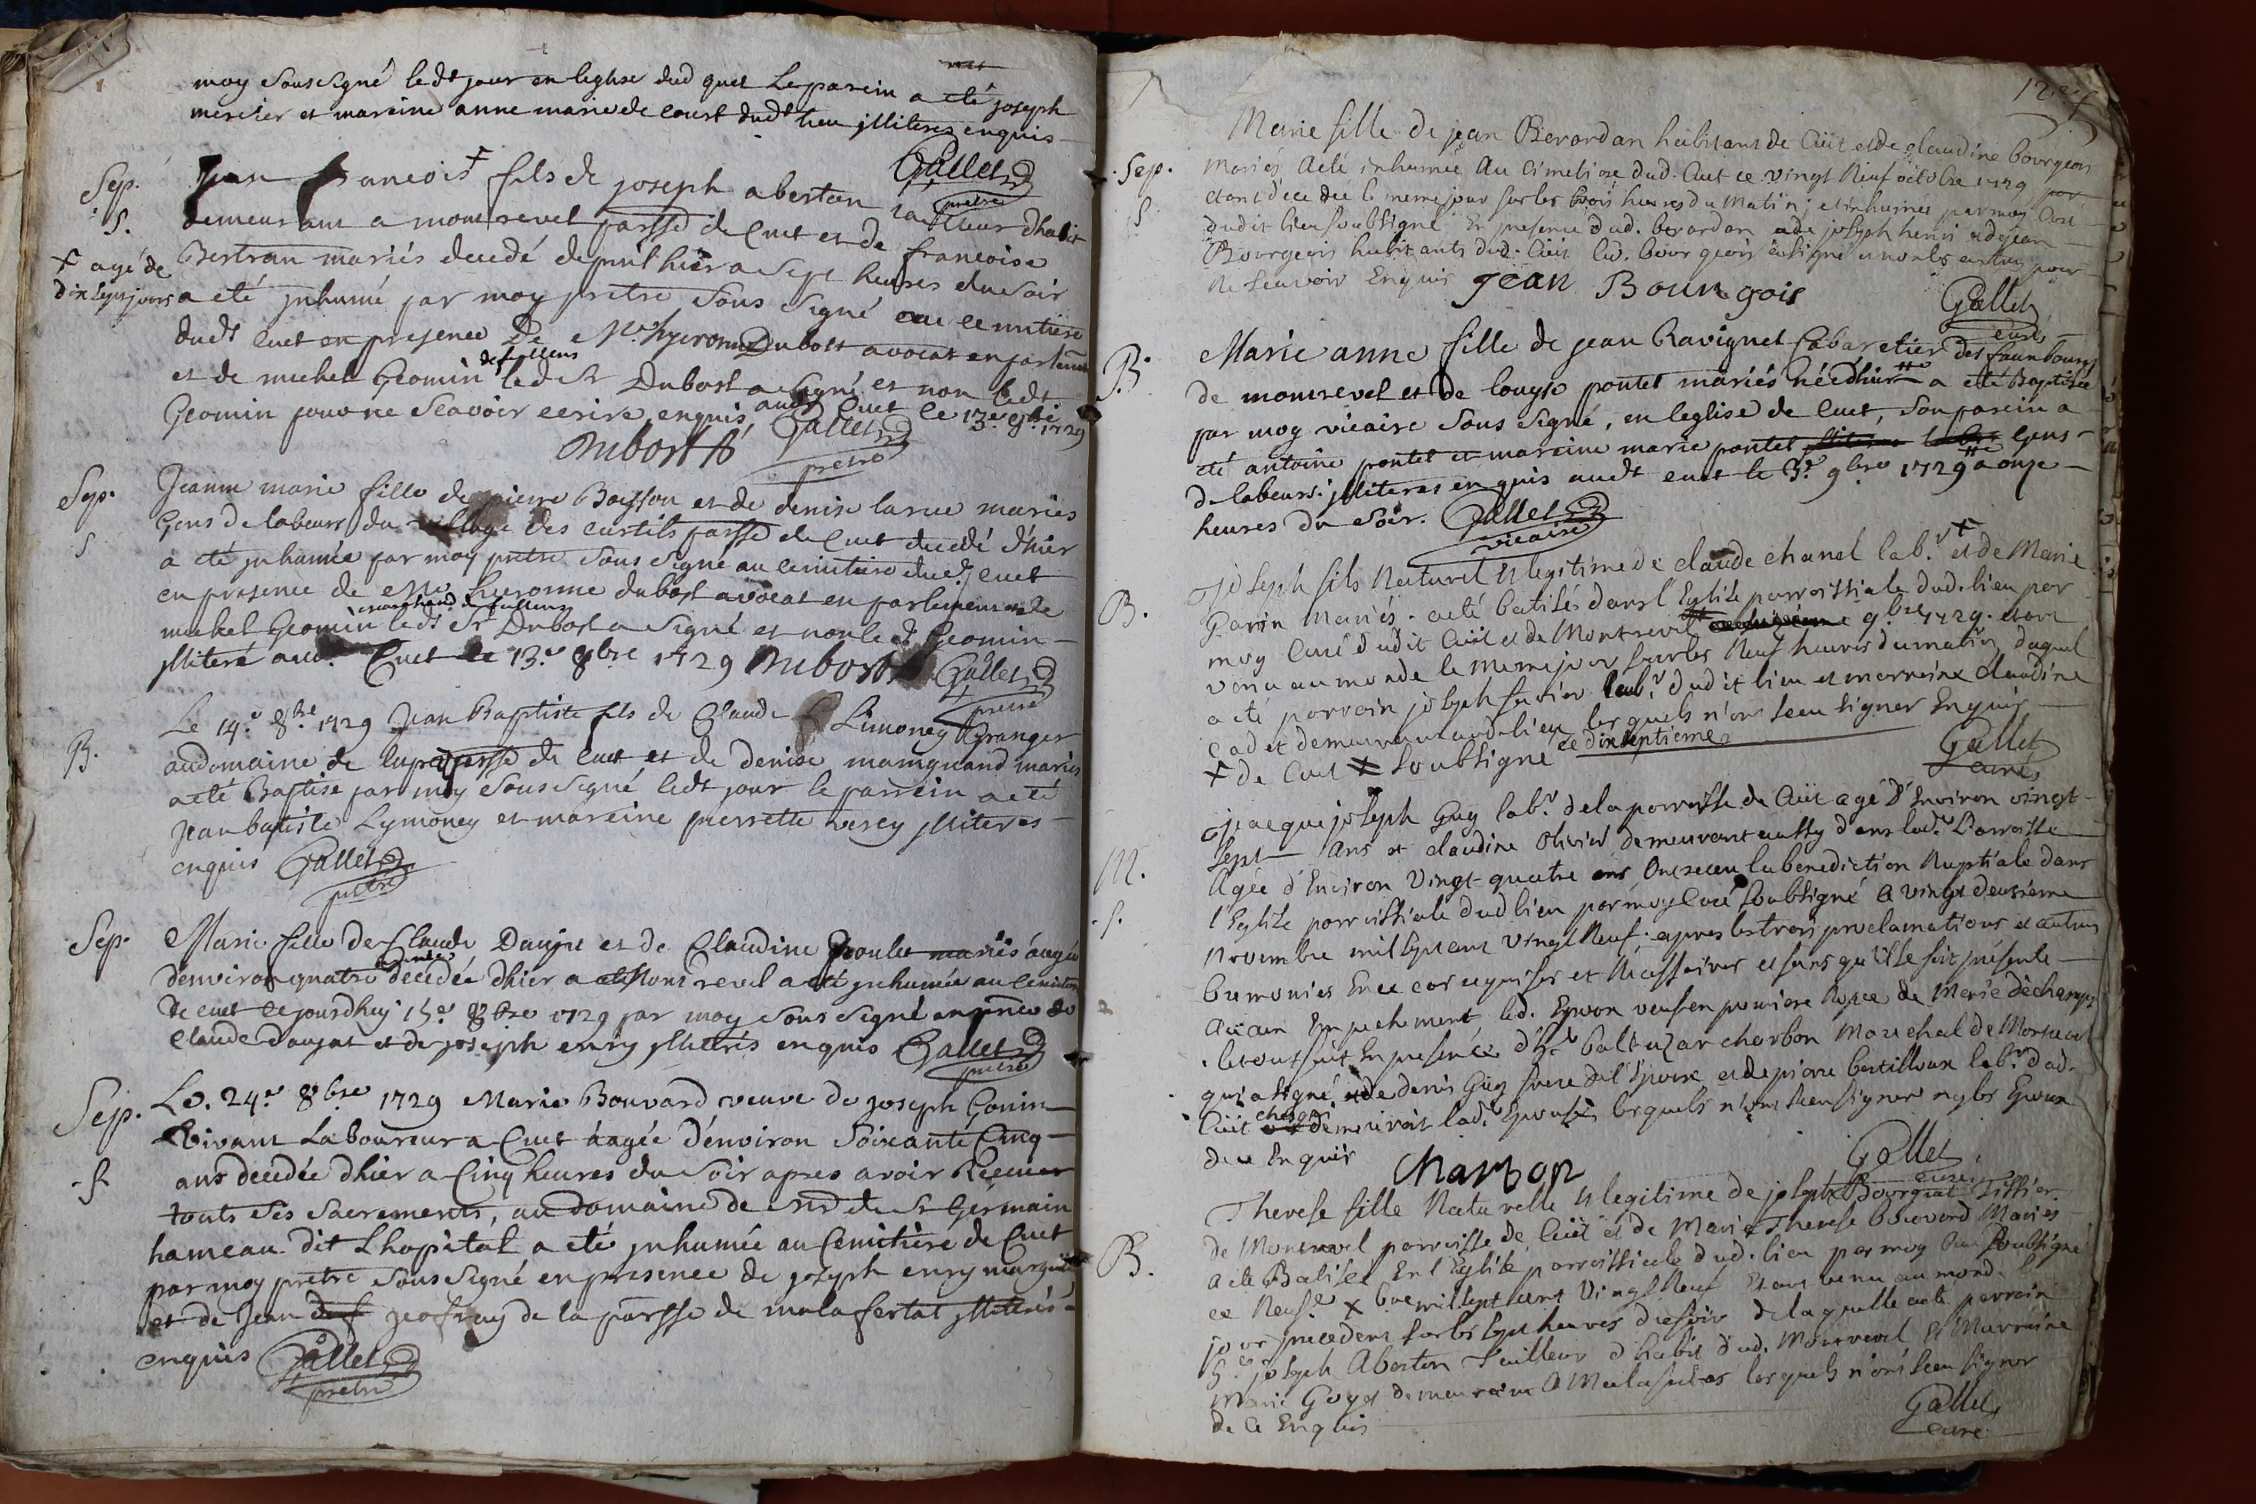 moy sousigné ledt jour en leglise dud quet Le parein a eté joseph
mercier et mareine anne marie de court dudt lieu jlliteres enquis
Gallet pretre
Sep.
S.
Jean francois + fils de joseph aberton tailleur dhabit
demeurant a montrevel parsse de Cuet et de francoise
+ agé de
dix sept jours
Bertran mariés decedé depuis hier a sept heures du soir
a eté jnhumé par moy pretre sous signé au cemitiere
dudt Cuet en presence de Me hyeronme Dubost avocat en parlemt
et de michel Geomin ledt Sr Dubost a signé et non ledt
Geomin pour ne scavoir ecrire enquis audt Cuet le 13e 8bre 1729
Dubost Gallet
pretre
Sep.
S
Jeanne marie fille de pierre Boisson et de denise larue mariés
Gens de labeurs du village des curtils parsse de Cuet decedé d'hier
a eté jnhumée par moy pretre sous signé au cemitiere dudt Cuet
en presence de Me hieronme dubost avocat en parlement et de
michel Geomin marchand ledt Sr Dubost a signé et non ledt Geomin
jlliteré aud. Cuet le 13e 8bre 1729 Dubost Gallet
pretre
B.
Le 14e 8bre 1729 Jean Baptiste fils de Claude Limoney Granger
au domaine de parsse de Cuet et de denise maingnand mariés
a eté Baptisé par moy sous signé ledt jour le parrein a eté
Jean batiste Lymoney et mareine pierrette verey jlliteres
enquis Gallet
pretre
Sep.
Marie fille de Claude Danjat et de Claudine poulet mariés aagée
denviron quatre années decedée dhier a Montrevel a eté jnhumée au cemitiere
de Cuet ce jourdhuy 15e 8bre 1729 par moy sous signé en pnce de
Claude danjat et de joseph enry jlliterés enquis Gallet
pretre
Sep.
S
Le 24e 8bre 1729 Marie Bouvard veuve de joseph Gonin
vivant Laboureur a Cuet aagée denviron soixante Cinq
ans decedée dhier a Cinq heures du soir apres avoir Receue
touts ses sacrements, au domaine de Sr Germain
hameau dit Lhopital a eté jnhumée au Cemitiere de Cuet
par moy pretre sous signé en presence de joseph enry
et de Jean geofray de la parsse de malafertat jlliterés
enquis Gallet
pretre
Sep.
S
Marie fille de jean Berardan habitant de Cuët et de claudine bourgeois
mariés a eté inhumée Au Cimetiere dud. Cuet ce vingt neuf octobre 1729
etant decedée le meme jour sur les trois heures du matin; et inhumée par moy Curé
dudit lieu soubsigné En presence dud. berardan et de joseph henri et de jean
Bourgeois habitants dud. Cuët led. bourgeois a signé et non les autres pour
ne scavoir Enquis jean Bourgois
Gallet
curé
B.
Marie anne fille de jean Ravignet Cabaretier des fauxbourgs
de montrevel et de louyse pontet mariés née d'hier a eté Baptisée
par moy vicaire sous signé, en leglise de Cuet, son parein a
eté antoine pontet et mareine marie pontet Gens
de labeurs. jlliteres enquis audt Cuet le 3e 9bre 1729 a onze
heures du soir. Gallet
vicaire
B.
joseph fils Naturel et legitime de claude chanel labr + et de Marie
Gavin Mariés. a eté batisé dans l'Eglise parroissiale dud. lieu par
moy Curé dudit Cuët et de Montrevel 9bre 1729. etant
venu au monde le meme jour sur les Neuf heures du matin duquel
a eté parrain joseph favier labr dudit lieu et marreine claudine
cadet demeurant aud lieu lesquels n'ont sceu signer Enquis
+ de Cuet soubsigné ce dixseptieme
Gallet
curé
M.
S.
jacque joseph Guy labr de la parroisse de Cuët agé d'Environ vingt
sept ans et claudine Olivier demeurant aussy dans lad. Parroisse
Agée d'Environ vingt quatre ans Ont receu la benediction Nuptiale dans
l'Eglise parroissiale dud lieu par moy Curé soubsigné a vingt deuxieme
Novembre mil sept cent vingt Neuf; apres les trois proclamations et autres
Ceremonies En ce cas requises et Necessaires et sans qu'il se soit présenté
Aucun Empechement, led. Epoux veuf en premiere Noces de Marie dechamps
le tout fait En presence d'hr baltazar charbon Marechal de Montrevel
qui a signé et de denis Guy frere de l'Epoux et de piere bertilloux labr dud.
Cuët chez qui demeuroit lad. Epouse lesquels n'ont sceu signer ny les Epoux
de ce Enquis Charbon
Gallet
curé
B.
Therese fille Naturelle et legitime de joseph Bourguat tissier
de Montrevel parroisse de Cuët et de Marie Therese bouvard Mariés
a eté Batisée En l'Eglise parroissiale dud. lieu par moy Curé soubsigné
ce Neufe xbre mil sept cent Vingt Neuf Etant venu au monde le
jour precedent sur les sept heures du soir de laquelle a eté parrain
hr joseph Aberton Tailleur d'habit dud. Montrevel et Marraine
Marie Goyet demeurant a Malafertas lesquels n'ont sceu signer
de ce Enquis
Gallet
curé